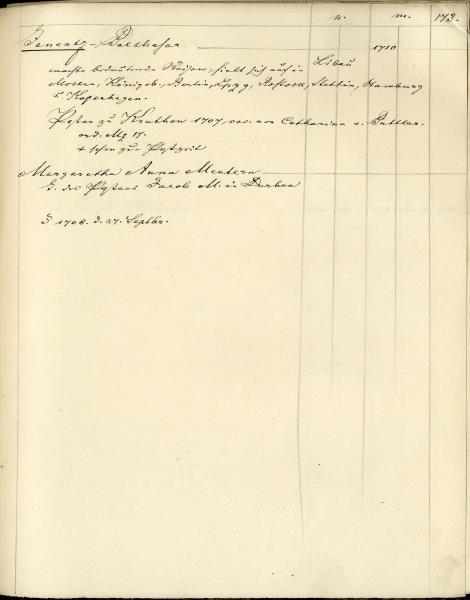 n. m. 173.
Banentz - Balthasar 1710
machte bedeutende Reisen, hielt sich auf in Libau
Moskau, Königsb., Berlin, Lpzg, Rostock, Stettin, Hamburg
u Kopenhagen.
Pastor zu Kruthen 1707, voc. von Catharina v. Buttlar.
ord. 17.
+ schon zur Pestzeit
Margaretha Anna Mentern
T. des Pastors Jacob M. in Durben
1708. d. 27. Septbr.